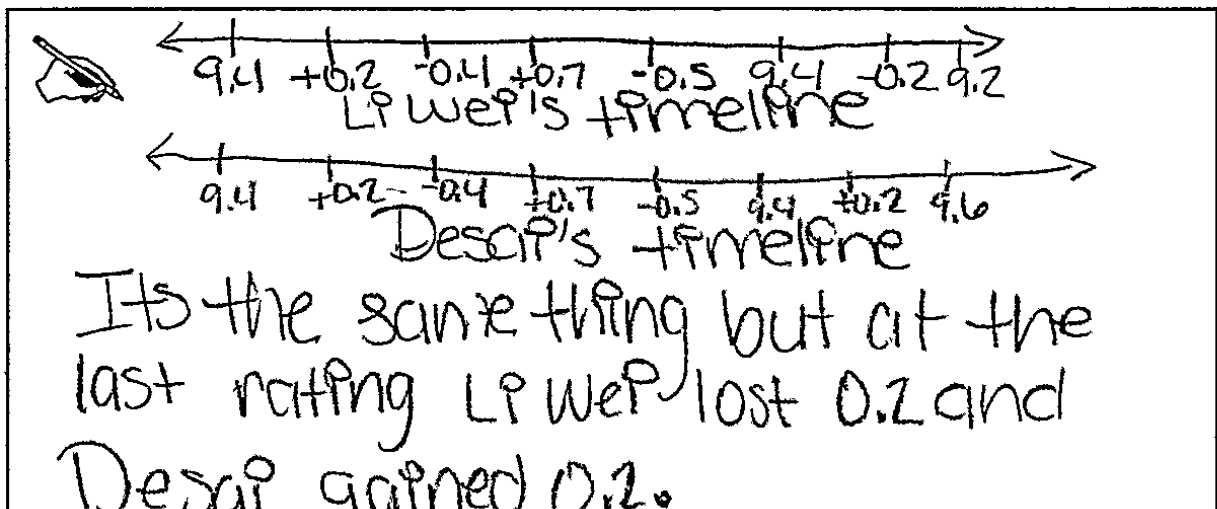 9.4 +0.2 -0.4 +0.7 -0.5 9.4 -0.2 9.2
Li Wei's timeline
9.4 +0.2 -0.4 +0.7 -0.5 9.4 +0.2 9.6
Desai's timeline
Its the same thing but at the
last rating Li Wei lost 0.2 and
Desai gained 0.2.